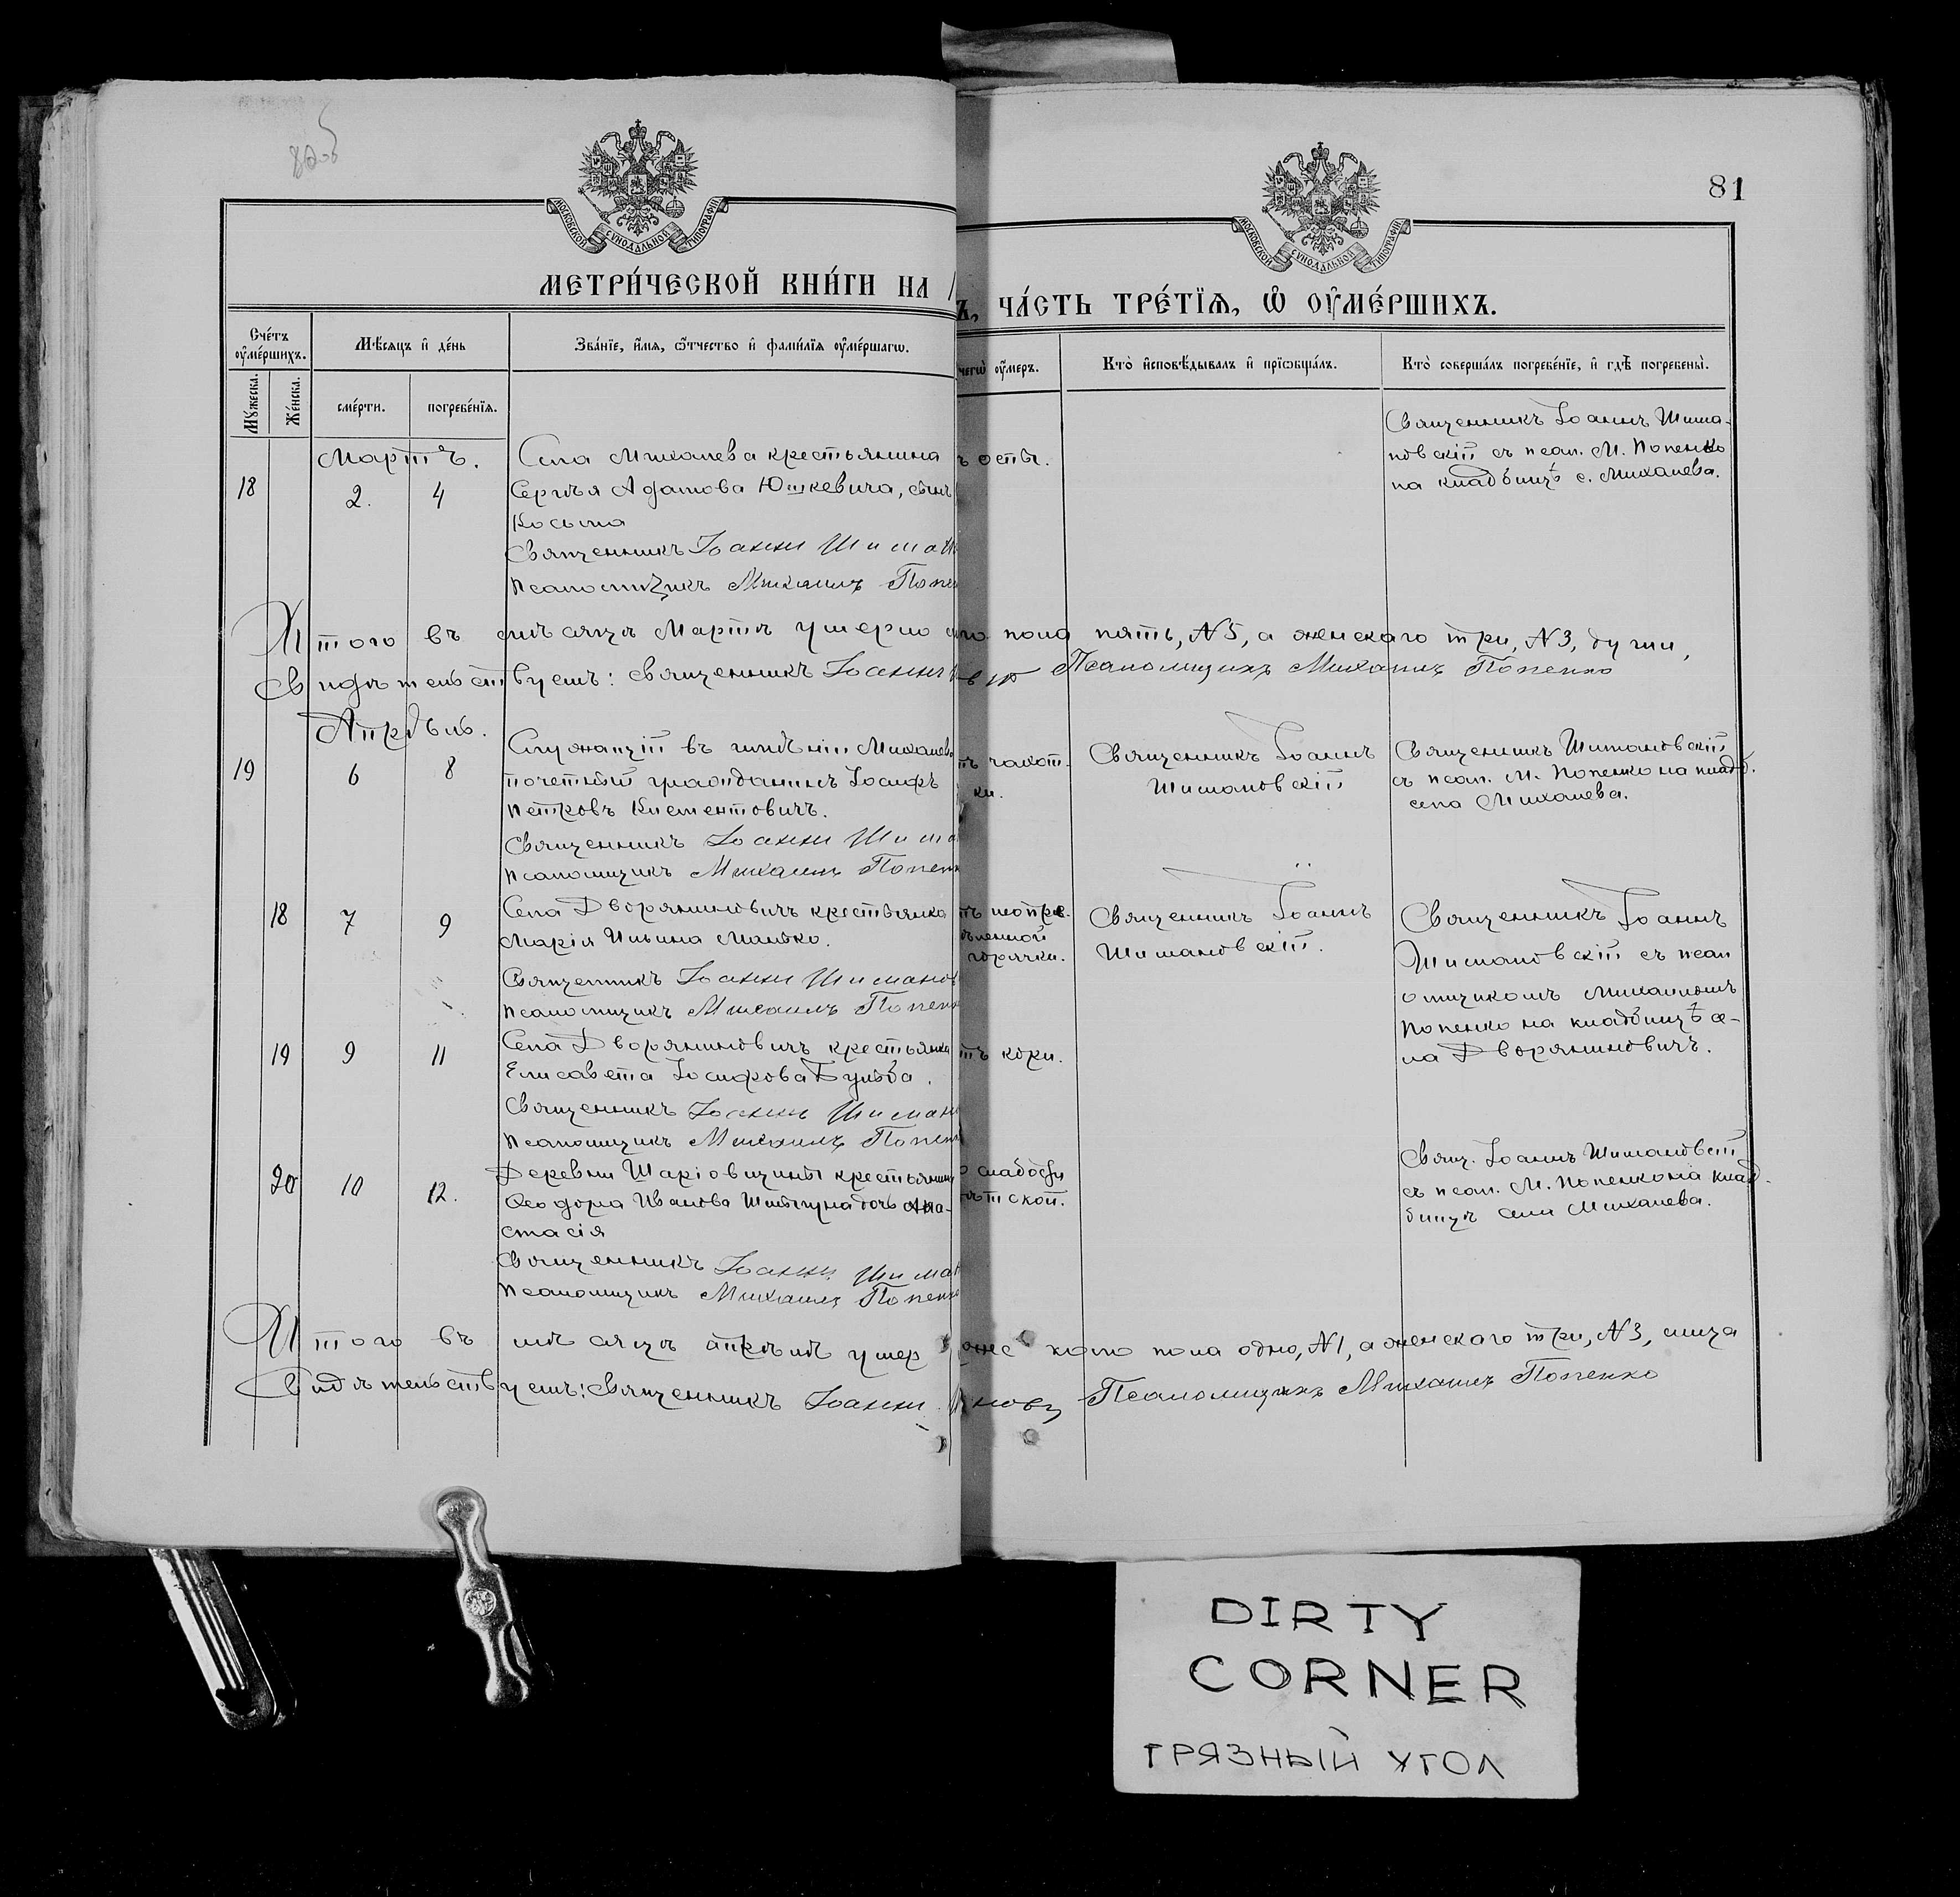 81
МОСКОВСКОЙ СѴНОДАЛЬНОЙ ТИПОГРАФІИ
МОСКОВСКОЙ СѴНОДАЛЬНОЙ ТИПОГРАФІИ
МЕТРИ́ЧЕСКОЙ КНИ́ГИ НА
Ъ, ЧА́СТЬ ТРЕ́ТІѦ, Ѡ҆ ОУ҆МЕ́РШИХЪ.
Сче́тъ оу҆ме́ршихъ.
Мѣ́сяцъ и҆ де́нь
Зва́нїе, и҆́мя, ѻ҆́тчество и҆ фами́лїя оу҆ме́ршагѡ.
чегѡ̀ оу҆́меръ.
Кто̀ и҆сповѣ́дывалъ и҆ прїѡбща́лъ.
Кто̀ соверша́лъ погребе́нїе, и҆ гдѣ̀ погребены̀.
Мꙋ́жеска.
Же́нска.
сме́рти.
погребе́нїя.
Мартъ.
18
2.
4
Села Михалева крестьянина
Сергѣя Адамова Юшкевича, сынъ
Косьма
Священникъ Іоаннъ Шиман
Псаломщикъ Михаилъ Попен
ъ оспы.
Священникъ Іоаннъ Шима-
новскій съ псал. М. Попенко
на кладбищѣ с. Михалева.
Итого въ мѣсяцѣ Мартѣ умерло
го пола пять, N 5, а женскаго три, N 3, души,
Свидѣтельствуемъ: священникъ Іоаннъ
Псаломщикъ Михаилъ Попенко
Апрѣль.
19
6
8
Служащій въ имѣніи Михалево
почетный гражданинъ Іосифъ
Петровъ Климентовичъ.
Священникъ Іоаннъ Шима
Псаломщикъ Михаилъ Попенк
тъ чахот-
ки.
Священникъ Іоаннъ
Шимановскій
Священникъ Шимановскій
съ псал. М. Попенко на кладб.
села Михалева.
18
7
9
Села Дворяниновичъ крестьянка
Марія Ильина Манько.
Священникъ Іоаннъ Шиманов
Псаломщикъ Михаилъ Попенк
горячки.
Священникъ Іоаннъ
Шимановскій.
Священникъ Іоаннъ
Шимановскій съ псал
омщикомъ Михаиломъ
Попенко на кладбищѣ се-
ла Дворяниновичъ.
19
9
11
Села Дворяниновичъ крестьянка
Елисавета Іосифова Бульба.
Священникъ Іоаннъ Шиман
Псаломщикъ Михаилъ Попен
тъ кори.
20
10
12.
Деревни Шаріовщины крестьянина
Ѳеодора Иванова дочь Ана-
стасія
Священникъ Іоаннъ Шиман
Псаломщикъ Михаилъ Попенко
слабости
ѣтской.
Свящ. Іоаннъ Шимановскій
съ псал. М. Попенко на клад-
бищѣ села Михалева.
Итого въ мѣсяцѣ апрѣлѣ умер
пола одно, N 1, а женскаго три, N 3, лица
Свидѣтельствуемъ: Священникъ Іоаннъ
Псаломщикъ Михаилъ Попенко
DIRTY
CORNER
ГРЯЗНЫЙ УГОЛ